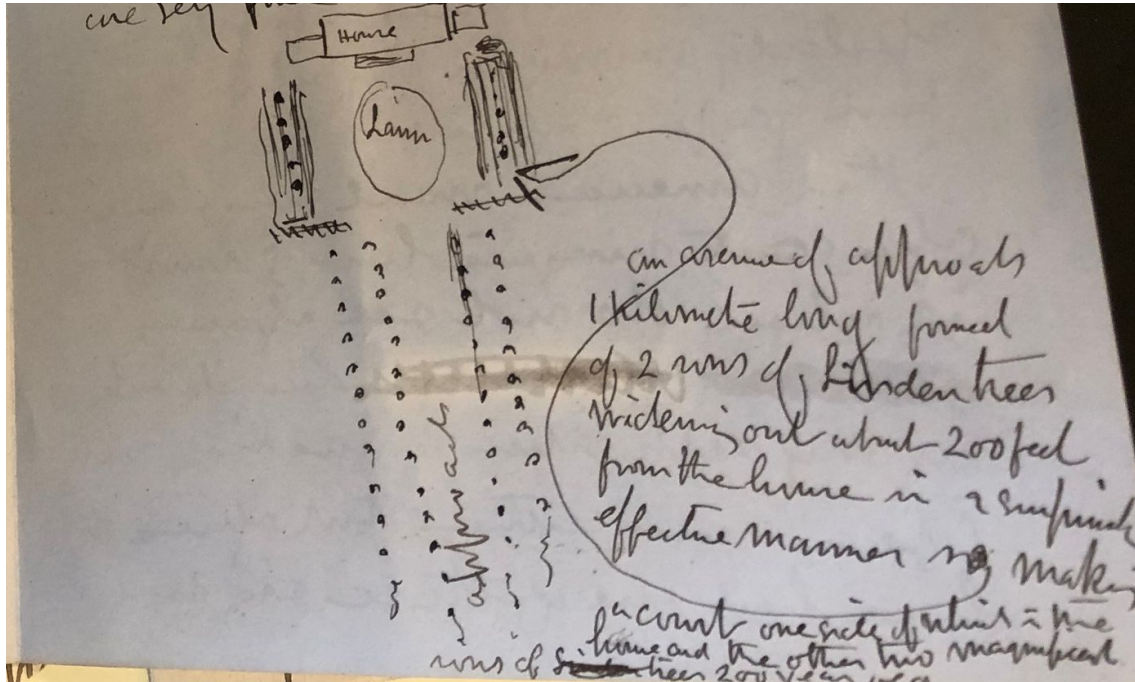 one very
House
Lawn
approach
an avenue of approach
1 Kilometre long formed
of 2 rows of Linden trees
widening out about 200 feet
from the house in a surprisingly
effective manner making
a court one side of which is the
house and the other two magnificent
rows of trees 200 years